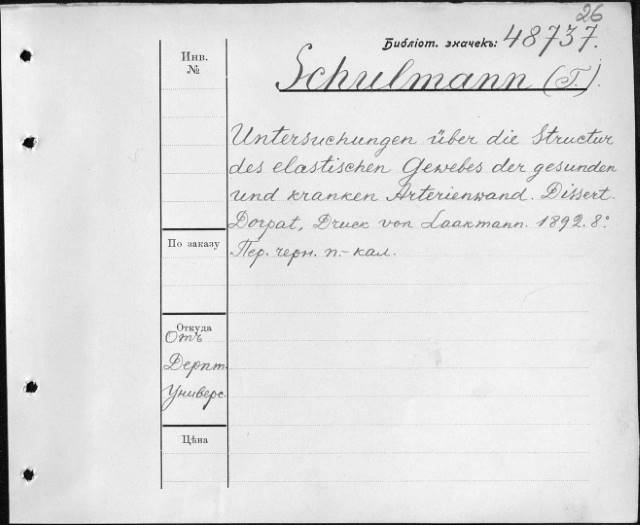 26
Библіот. значекъ: 48737.
Инв.
№
Schulmann (T.).
Untersuchungen über die Structur
des elastischen Gewebes der gesunden
und kranken Arterienwand. Dissert.
Dorpat, Druck von Laakmann. 1892. 8°.
По заказу
Пер. черн. п.-кал.
Откуда
Отъ
Дерпт.
Универс.
Цѣна